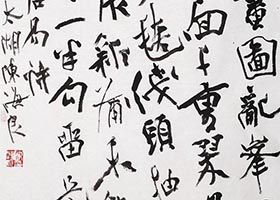 畫圖亂峯
面千重翠
毯綫頭抽
展新蒲未
一半勾留是
居易詩
太湖陳海良